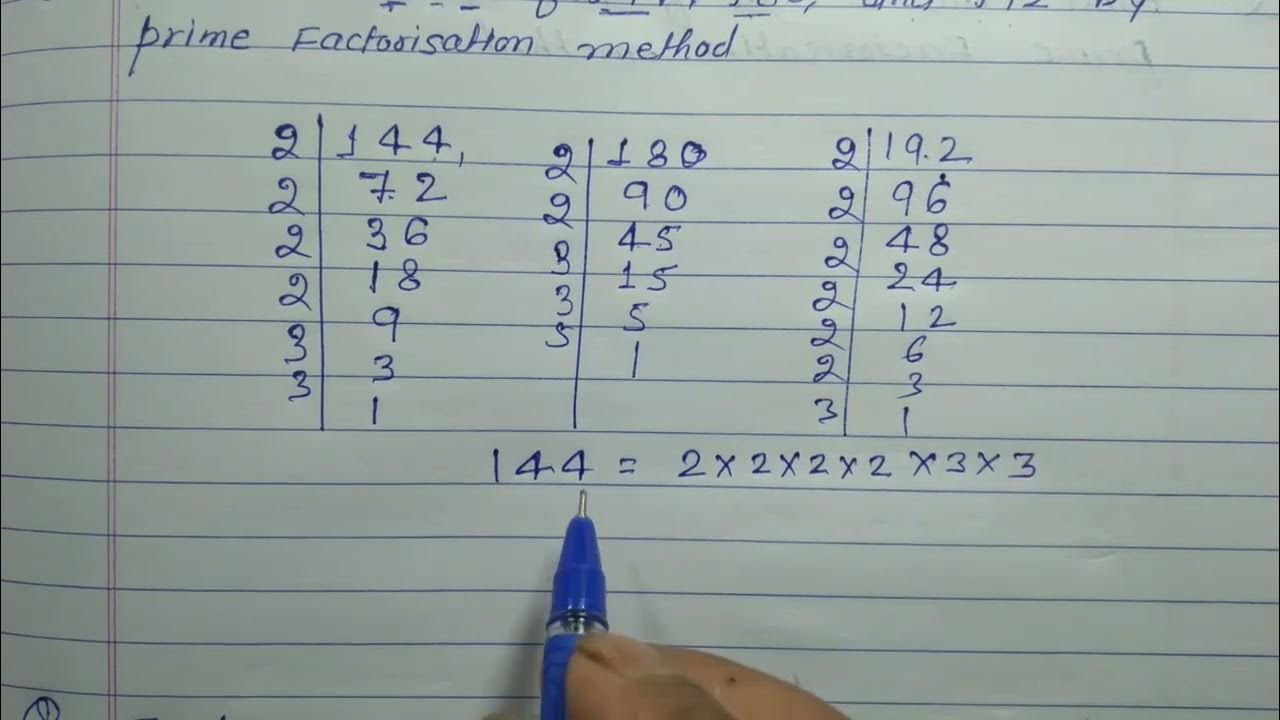 by
prime Factorisation method
2 | 144, 2 | 180 2 | 19.2
2 | 72 2 | 90 2 | 96
2 | 36 3 | 45 2 | 48
2 | 18 3 | 15 2 | 24
3 | 9 5 | 5 2 | 12
3 | 3 1 2 | 6
1 3 | 3
1
144 = 2 × 2 × 2 × 2 × 3 × 3